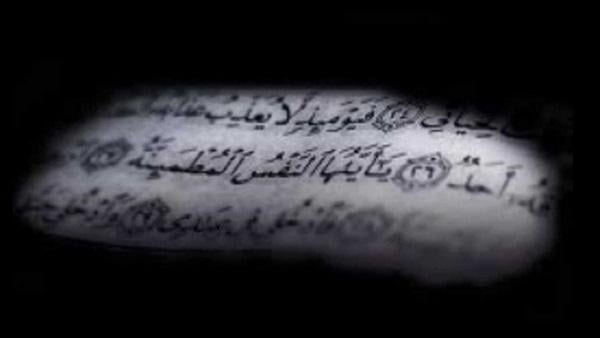 لِحَيَاتِي ٢٤ فَيَوْمَئِذٍ لَّا يُعَذِّبُ عَذَابَهُ
أَحَدٌ ٢٦ يَٰٓأَيَّتُهَا ٱلنَّفْسُ ٱلْمُطْمَئِنَّةُ ٢٧
فَٱدْخُلِى فِى عِبَٰدِى ٢٩ وَٱدْخُلِى